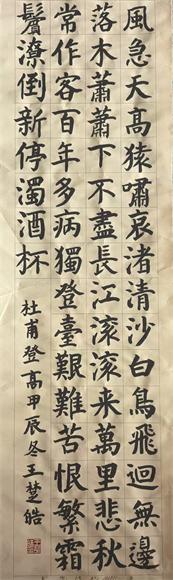 風急天高猿嘯哀渚清沙白鳥飛迴無邊
落木蕭蕭下不盡長江滾滾来萬里悲秋
常作客百年多病獨登臺艱難苦恨繁霜
鬢潦倒新停濁酒杯
杜甫登高甲辰冬王楚皓